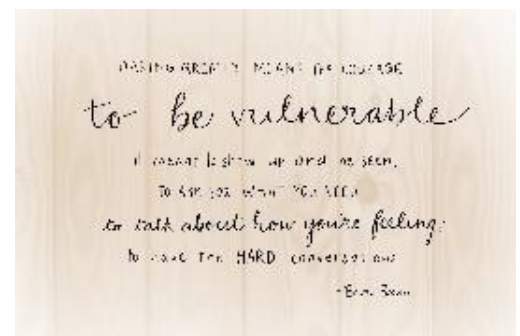 DARING GREATLY MEANS THE COURAGE
to be vulnerable
it means to show up and be seen.
TO ASK FOR WHAT YOU NEED
to talk about how you're feeling.
to have the HARD conversations
-Brené Brown